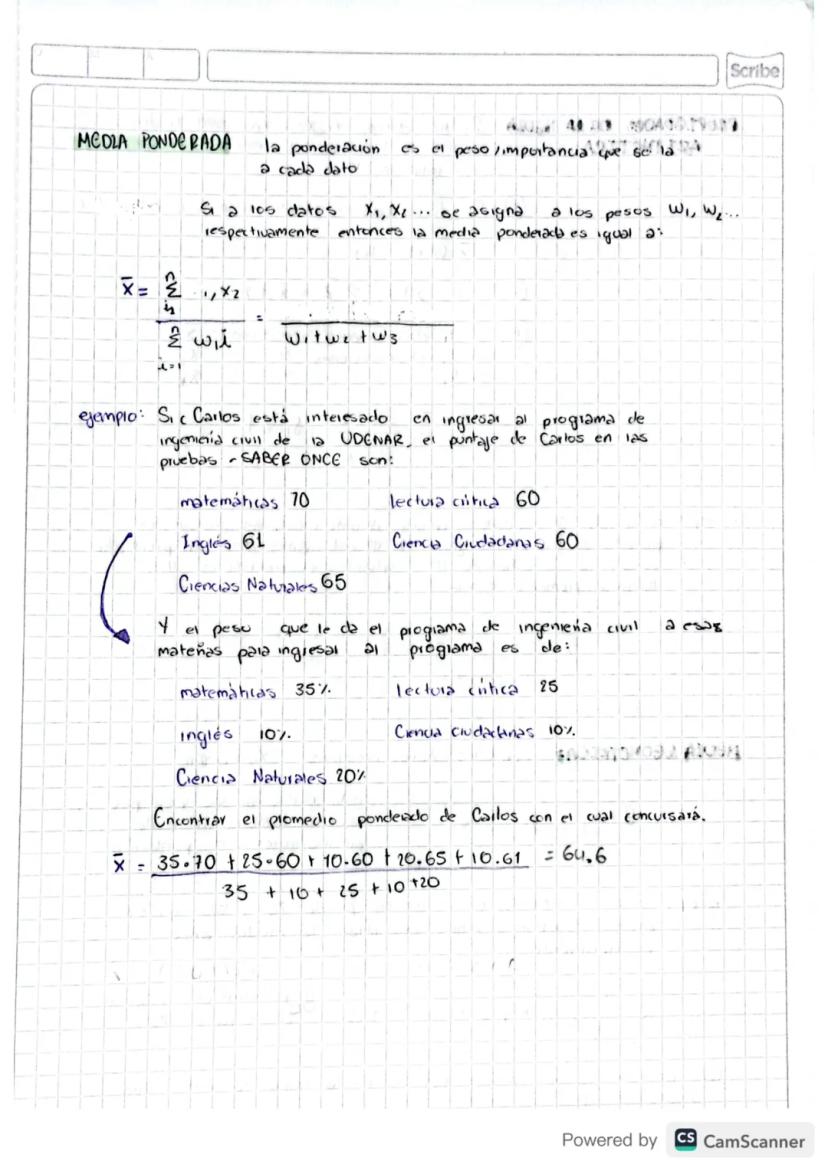 Scribe
MEDIA PONDERADA la ponderación es el peso/importancia que se la
a cada dato
Si a los datos X₁, X₂... se asigna a los pesos W₁, W₂...
respectivamente entonces la media ponderada es igual a:
x̄ = Σ , x₂
n
i=1
Σ wᵢi = W₁+w₂+w₃
n
i=1
ejemplo: Si Carlos está interesado en ingresar al programa de
ingeniería civil de la UDENAR, el puntaje de Carlos en las
pruebas - SABER ONCE son:
matemáticas 70 lectura crítica 60
Inglés 61 Ciencia Ciudadanas 60
Ciencias Naturales 65
Y el peso que le da el programa de ingeniería civil a esas
materias para ingresar al programa es de:
matemáticas 35% lectura crítica 25
inglés 10% Ciencia Ciudadanas 10%
Ciencia Naturales 20%
Encontrar el promedio ponderado de Carlos con el cual concursará.
x̄ = 35.70 + 25.60 + 10.60 + 20.65 + 10.61 = 64,6
35 + 10 + 25 + 10 +20
Powered by CS CamScanner